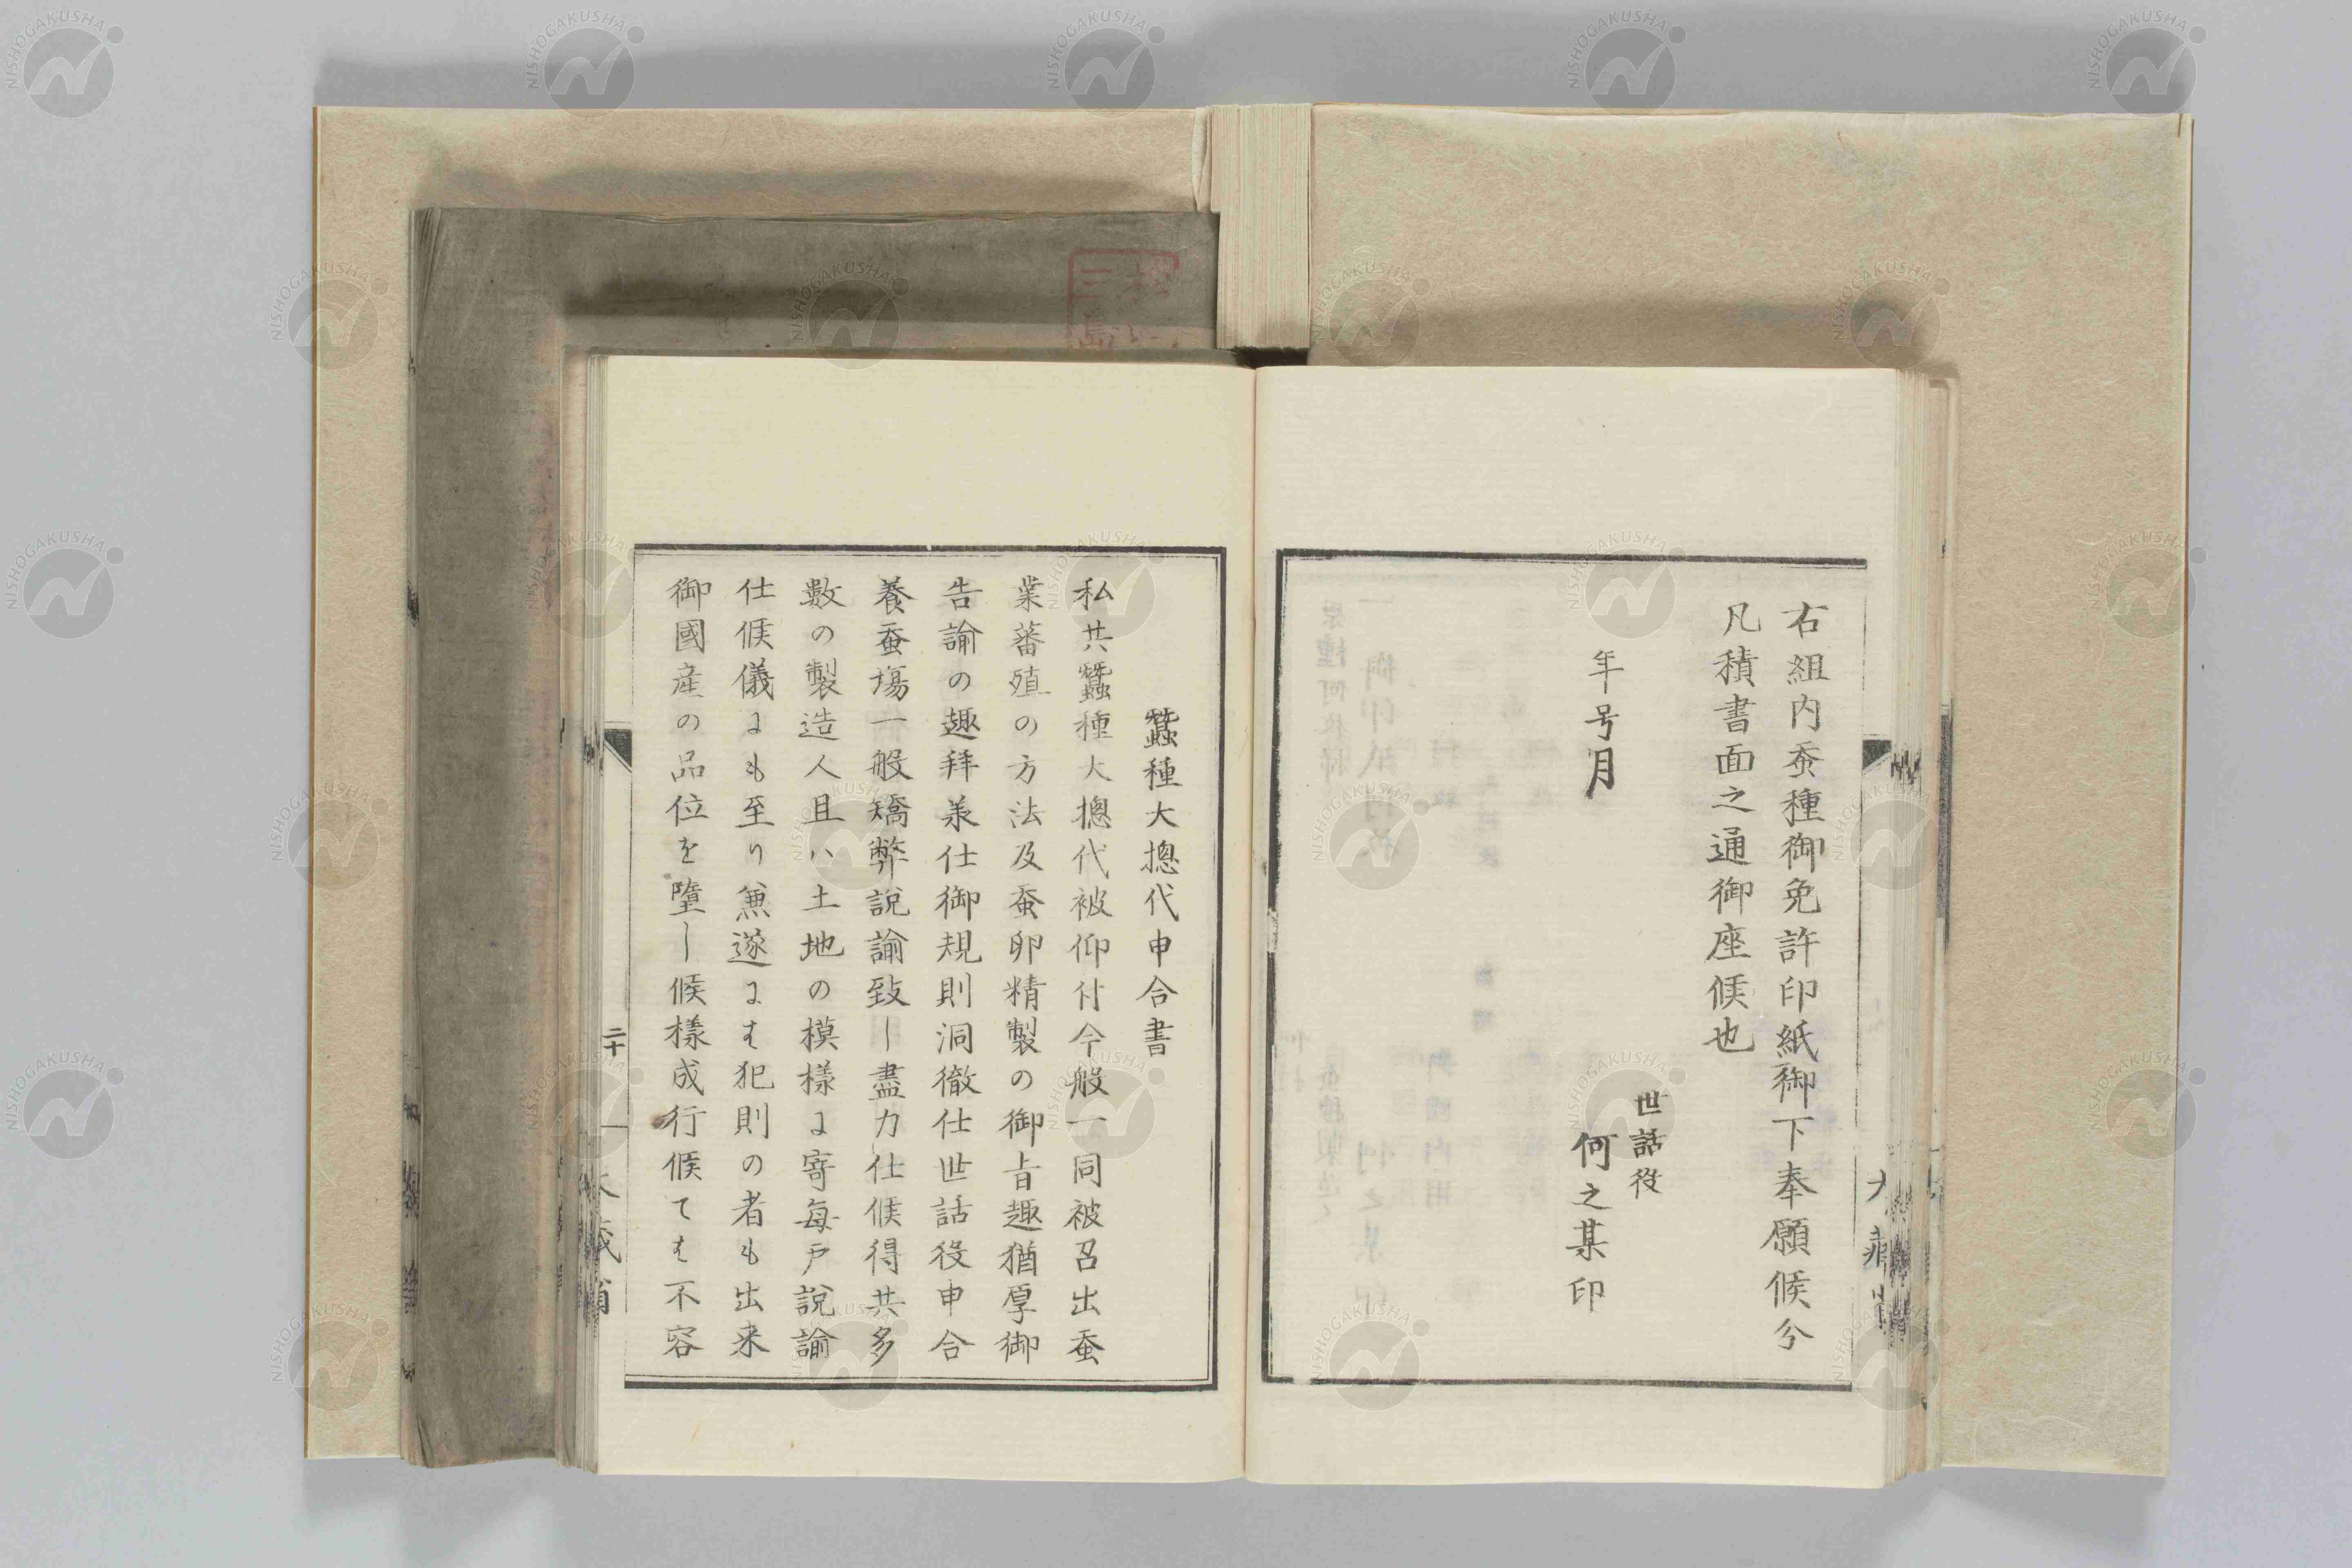 右組内蚕種御免許印紙御下奉願候分
凡積書面之通御座候也
年号月
世話役
何之某印
蠶種大摠代申合書
私共蠶種大摠代被仰付今般一同被召出蚕
業蕃殖の方法及蚕卵精製の御旨趣猶厚御
告諭の趣拜承仕御規則洞徹仕世話役申合
養蚕場一般矯弊説諭致し盡力仕候得共多
數の製造人且ハ土地の模様に寄毎戸説諭
仕候儀にも至り兼遂には犯則の者も出来
御國産の品位を墮し候様成行候ては不容
二十
大蔵省
NISHOGAKUSHA